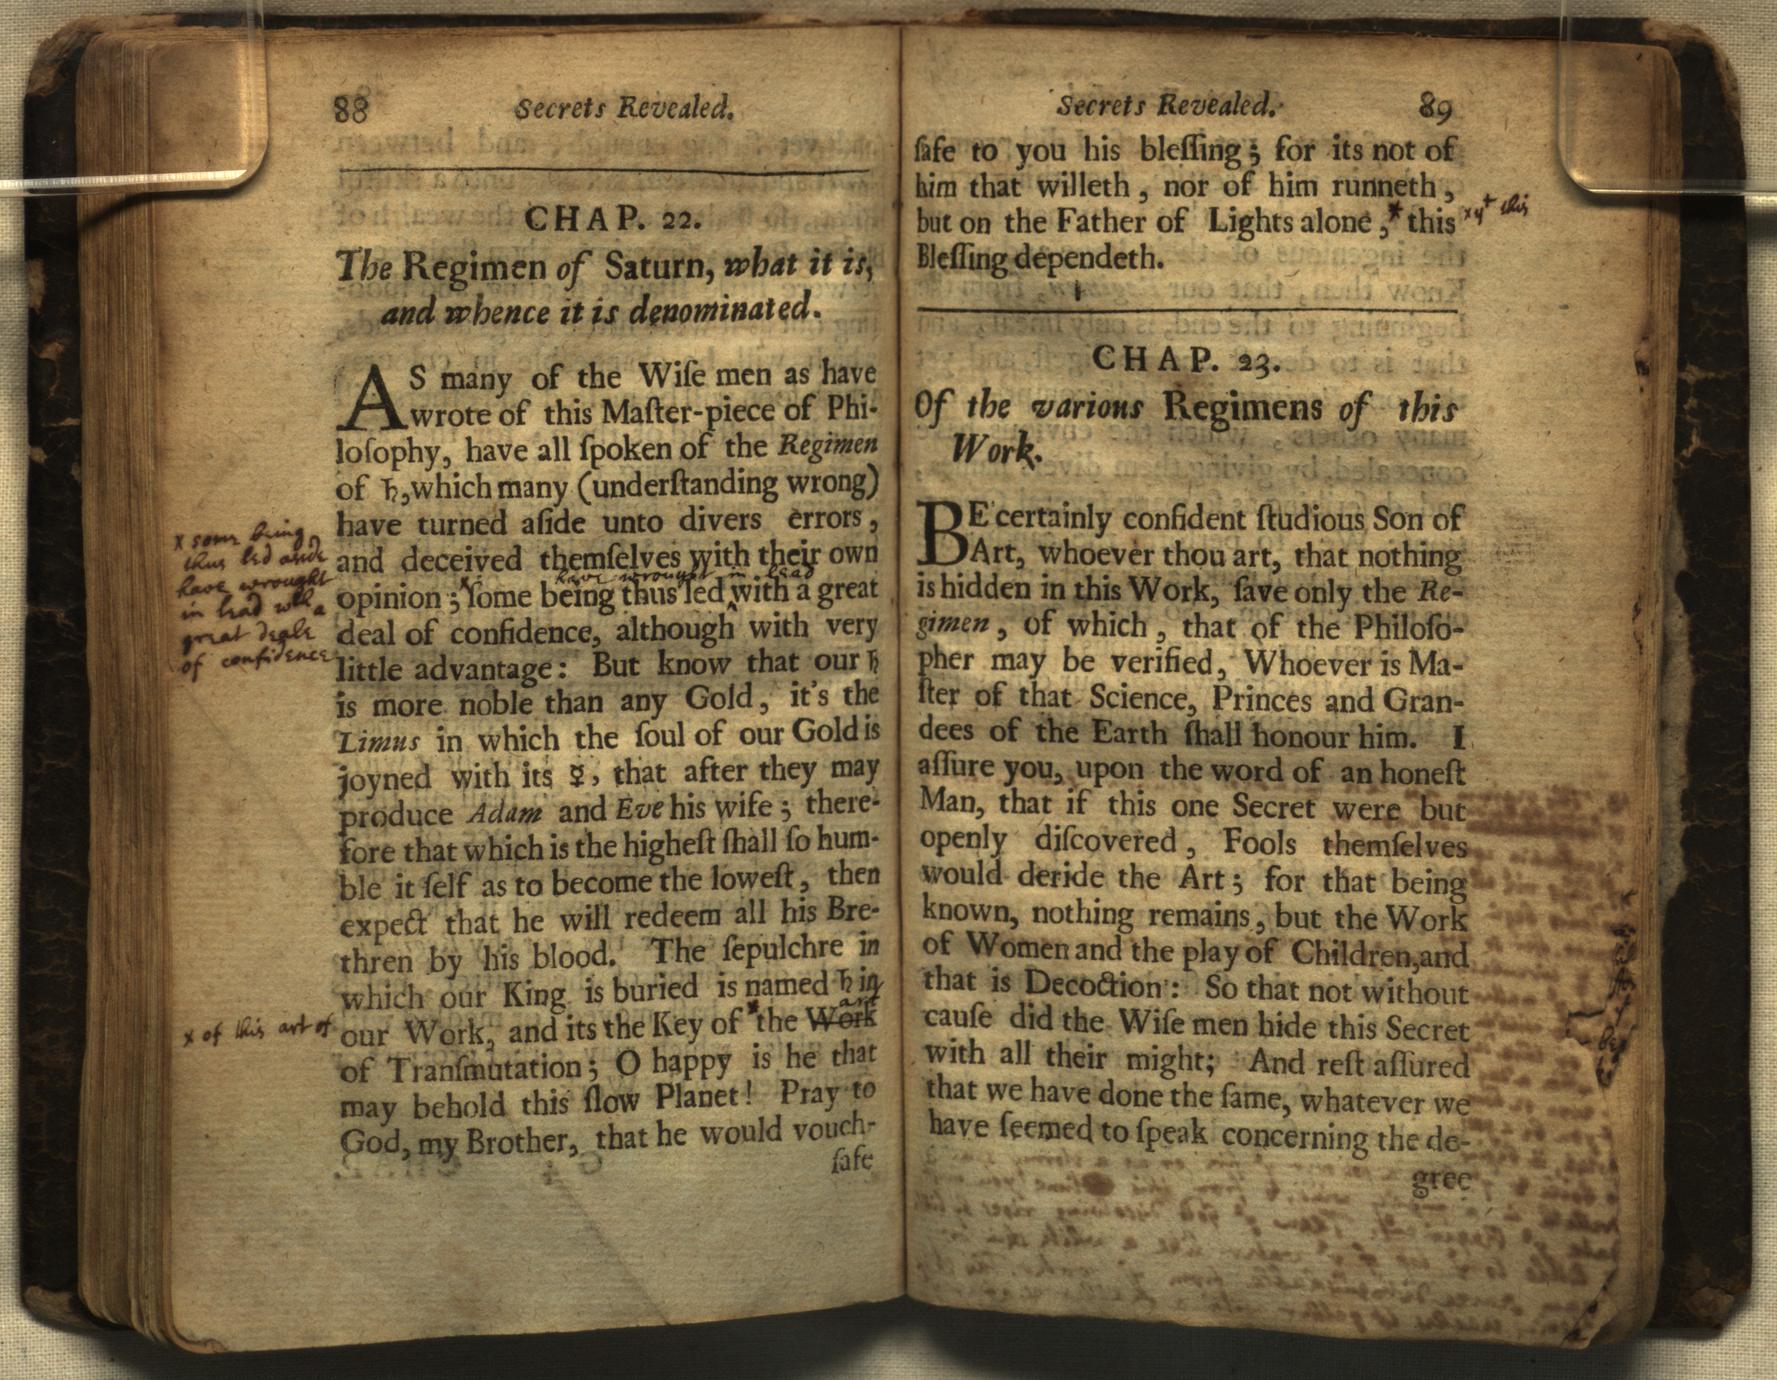 88 Secrets Revealed.
CHAP. 22.
The Regimen of Saturn, what it is,
and whence it is denominated.
AS many of the Wiſe men as have
wrote of this Maſter-piece of Phi-
loſophy, have all ſpoken of the Regimen
of ♄, which many (underſtanding wrong)
have turned aſide unto divers errors,
and deceived themſelves with their own
have wrought in lead
opinion; ˣ ſome being thus led ‸ with a great
deal of confidence, although with very
little advantage: But know that our ♄
is more noble than any Gold, it's the
Limus in which the ſoul of our Gold is
joyned with its ☿, that after they may
produce Adam and Eve his wife; there-
fore that which is the higheſt ſhall ſo hum-
ble it ſelf as to become the loweſt, then
expect that he will redeem all his Bre-
thren by his blood. The ſepulchre in
which our King is buried is named ♄ in
art
our Work, and its the Key of * the Work
of Tranſmutation; O happy is he that
may behold this ſlow Planet! Pray to
God, my Brother, that he would vouch-
ſafe
x some being
thus led aside
have wrought
in lead with a
great deale
of confidence
x of this art of
Secrets Revealed. 89
ſafe to you his bleſſing; for its not of
him that willeth, nor of him runneth,
but on the Father of Lights alone, * this
Bleſſing dependeth.
x yt this
CHAP. 23.
Of the various Regimens of this
Work.
BE certainly confident ſtudious Son of
Art, whoever thou art, that nothing
is hidden in this Work, ſave only the Re-
gimen, of which, that of the Philoſo-
pher may be verified, Whoever is Ma-
ſter of that Science, Princes and Gran-
dees of the Earth ſhall honour him. I
aſſure you, upon the word of an honeſt
Man, that if this one Secret were but
openly diſcovered, Fools themſelves
would deride the Art; for that being
known, nothing remains, but the Work
of Women and the play of Children, and
that is Decoction: So that not without
cauſe did the Wiſe men hide this Secret
with all their might; And reſt aſſured
that we have done the ſame, whatever we
have ſeemed to ſpeak concerning the de-
gree